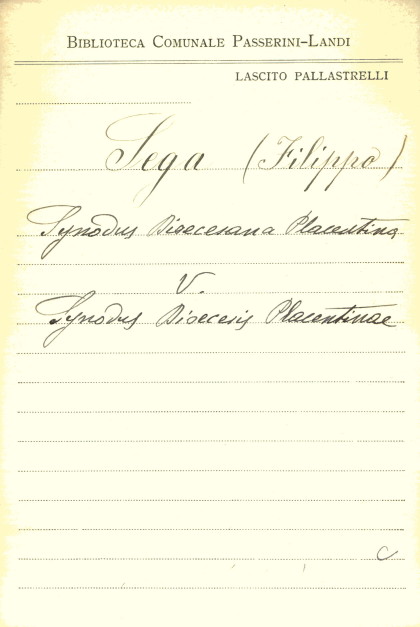 BIBLIOTECA COMUNALE PASSERINI-LANDI
LASCITO PALLASTRELLI
Sega (Filippo)
Synodus Dioecesana Placentina
V.
Synodus Dioecesis Placentinae
C